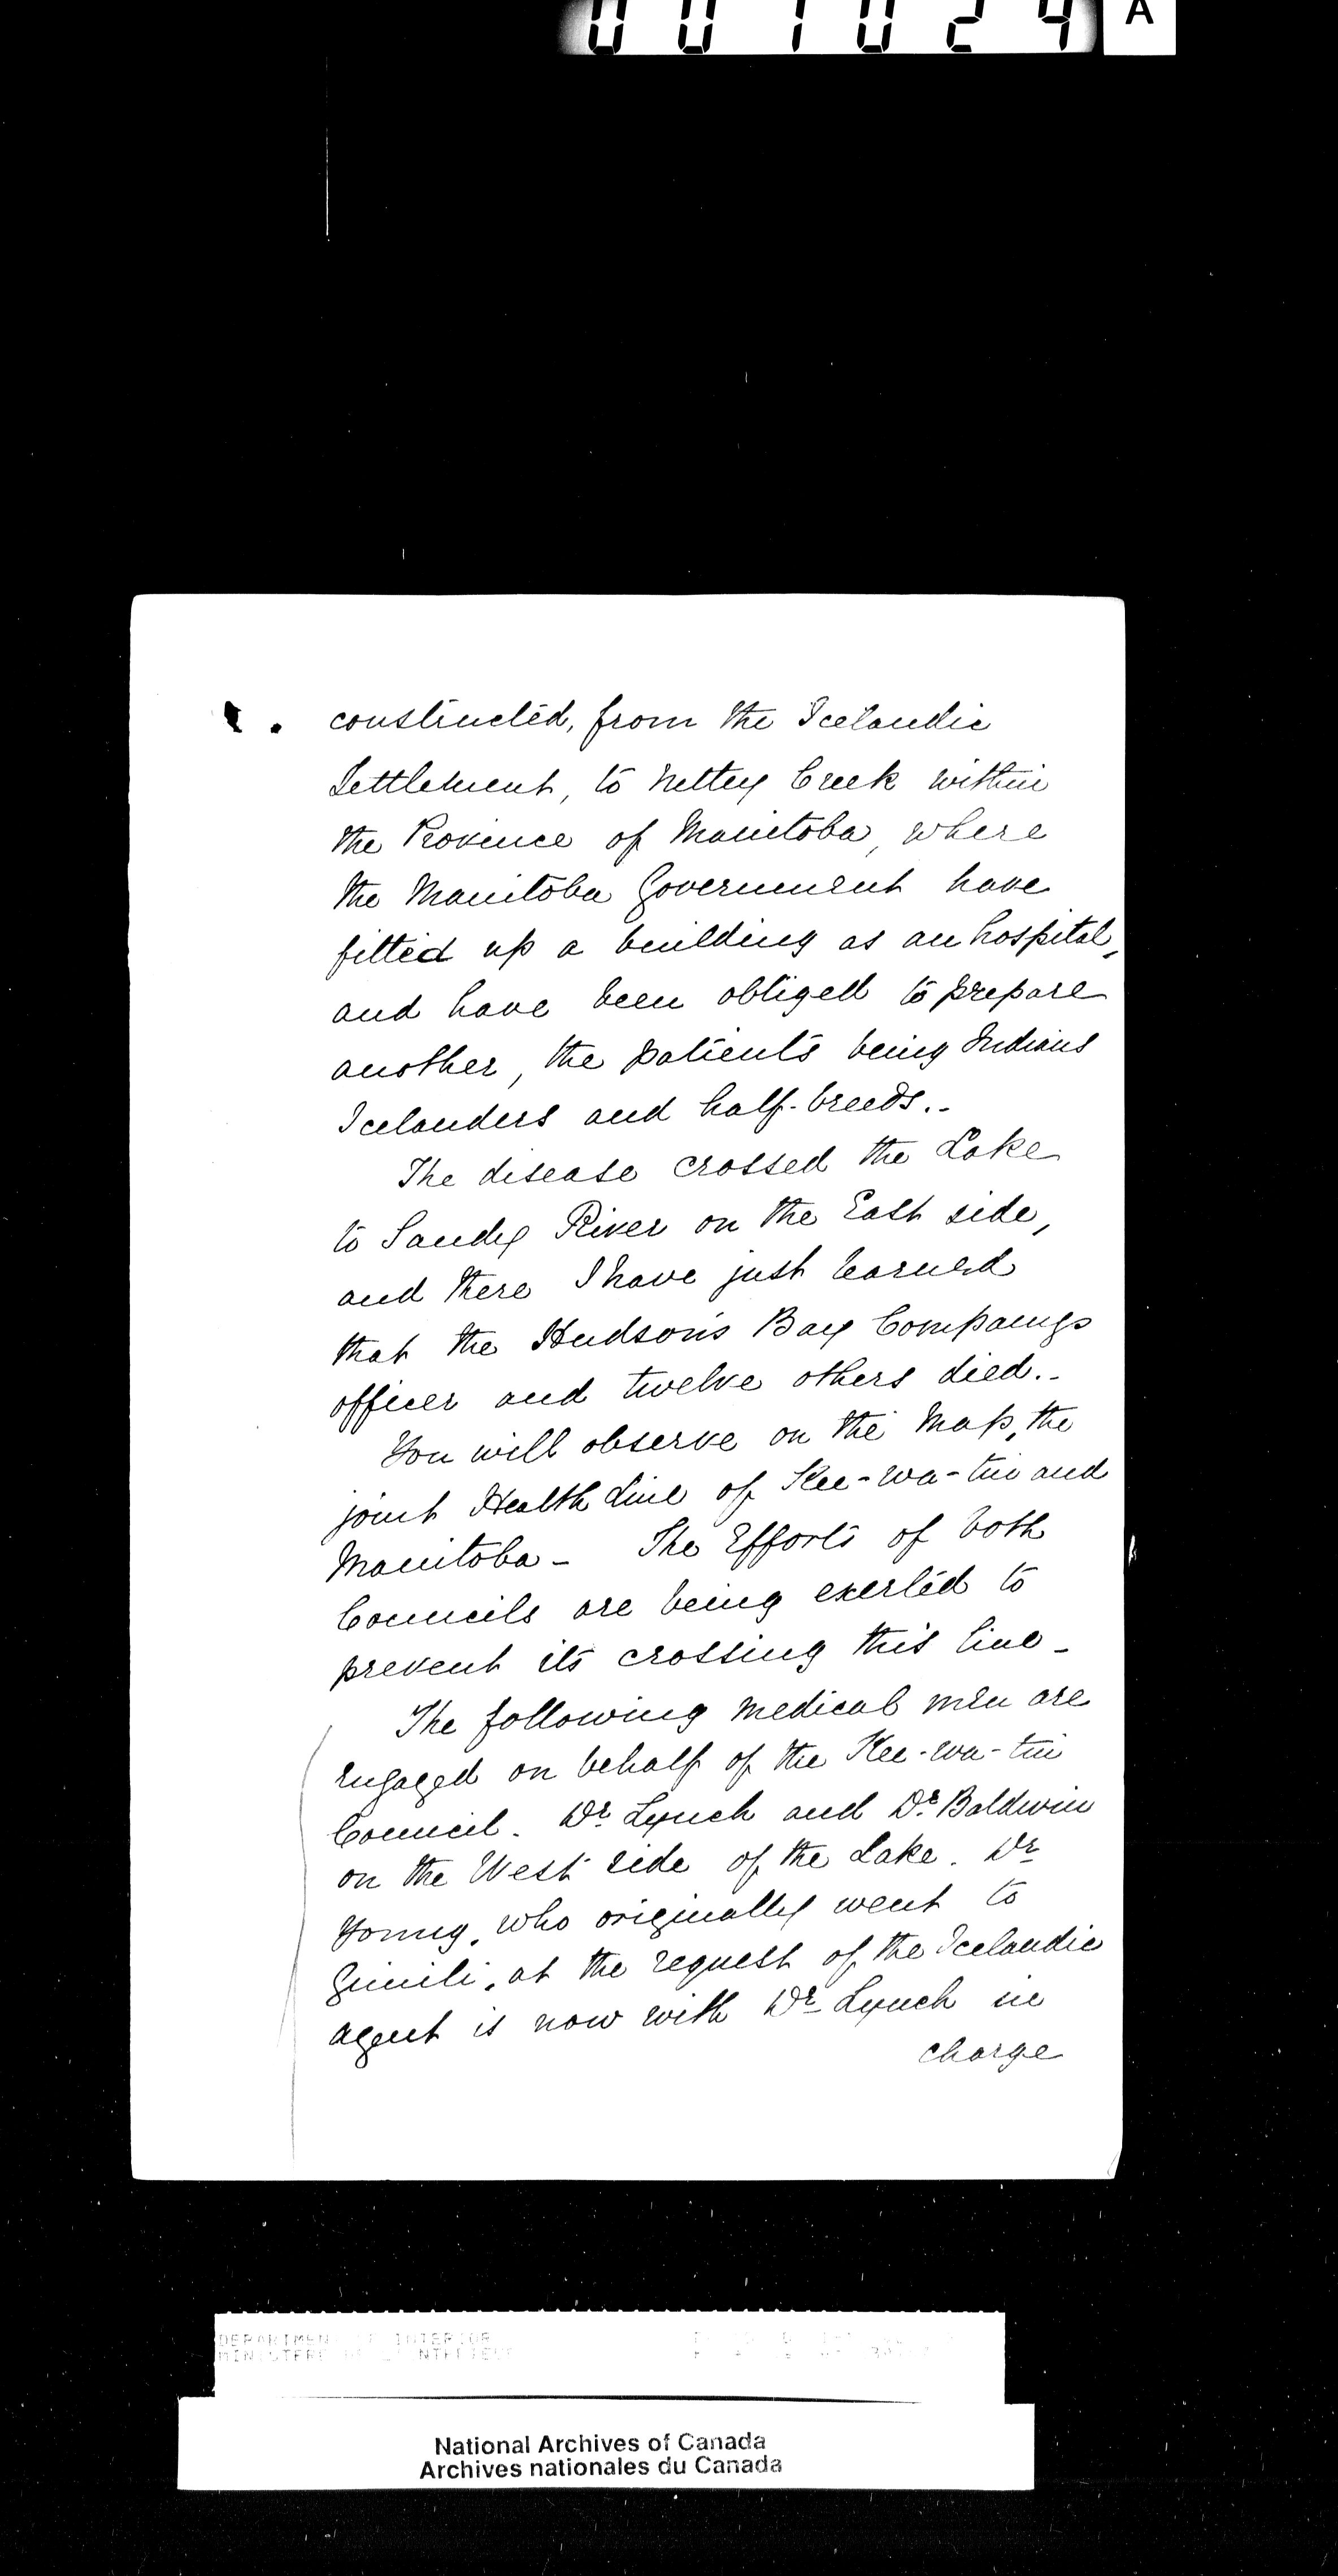 001024 A
constructed, from the Icelandic
Settlement, to Nettey Creek within
the Province of Manitoba, where
the Manitoba Government have
fitted up a building as an hospital,
and have been obliged to prepare
another, the patients being Indians
Icelanders and half-breeds.-
The disease crossed the Lake
to Sandy River on the East side,
and there I have just learned
that the Hudson's Bay Companys
officer and twelve others died.-
You will observe on the Map, the
joint Health Line of Kee-wa-tin and
Manitoba - The Efforts of both
Councils are being exerted to
prevent its crossing this line -
The following medical men are
engaged on behalf of the Kee-wa-tin
Council. Dr Lynch and Dr Baldwin
on the West side of the Lake. Dr
Young, who originally went to
Gimili, at the request of the Icelandic
agent is now with Dr Lynch in
charge
DEPARTMEN INTERIOR
National Archives of Canada
Archives nationales du Canada